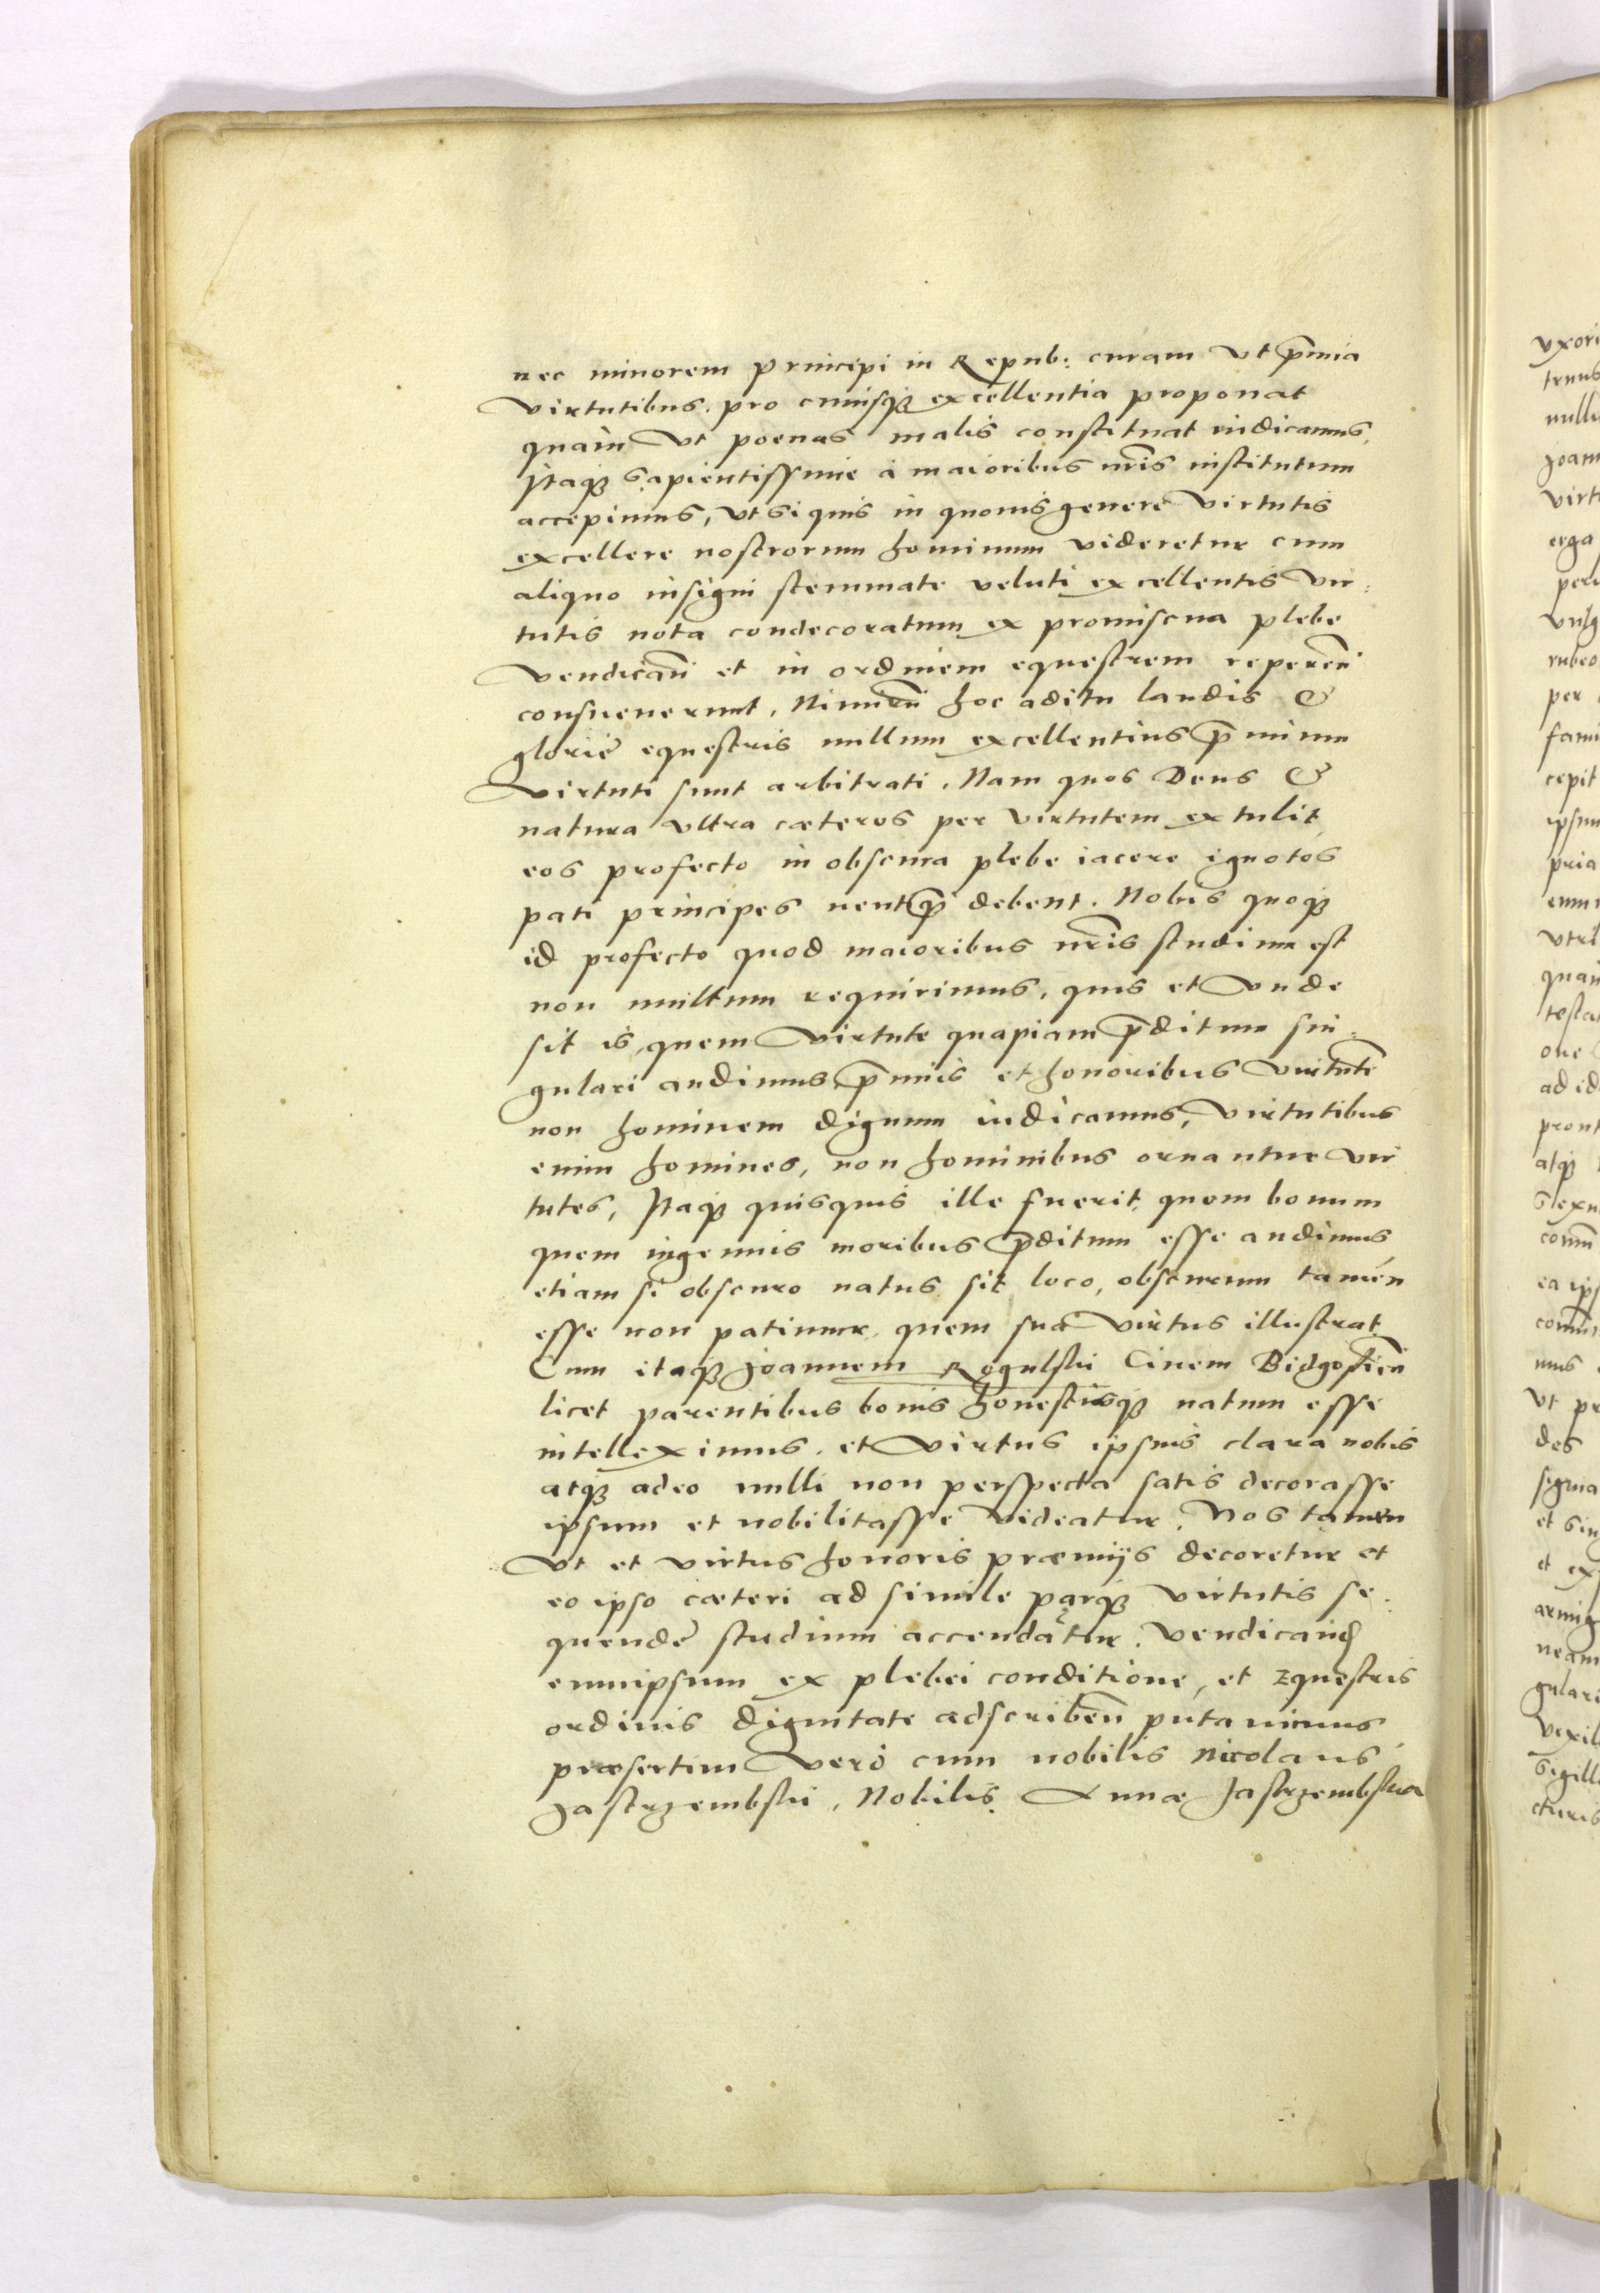 nec minorem principi in Repub: curam vt p̄mia
virtutibus, pro cuiusq; excellentia proponat
quàm vt poenas malis constituat iudicamus,
Itaq; sapientissime à maioribus nr̄is institutum
accepimus, vt si quis in quouis genere virtutis
excellere nostrorum hominum videretur eum
aliquo insigni stemmate veluti excellentis vir:
tutis nota condecoratum ex promiscua plebe
vendican̄ et in ordinem equestrem reperen̄
consueuerunt, Nimirū hoc aditu laudis &
glorie equestris nullum excellentius p̄mium
virtuti sunt arbitrati. Nam quos Deus &
natura vltra cæteros per virtutem extulit,
eos profecto in obscura plebe iacere ignotos
pati principes neutiq̄ debent. Nobis quoq;
id profecto quod maioribus nr̄is studium est
non multum requirimus, quis et vnde
sit is, quem virtute quapiam p̄ditum sin:
gulari audimus, p̄miis et honoribus virtutē
non hominem dignum iudicamus, virtutibus
enim homines, non hominibus ornantur vir
tutes, Itaq; quisquis ille fuerit, quem bonum
quem ingenuis moribus p̄ditum esse audimus,
etiam si obscuro natus sit loco, obscurum tamen
esse non patimur, quem sua virtus illustrat.
Cum itaq; Joannem Rogulski Ciuem Bidgostien̄
licet parentibus bonis honestisq; natum esse
intelleximus, et virtus ipsius clara nobis
atq; adeo nulli non perspecta satis decorasse
ipsum et nobilitasse videatur, Nos tamen
vt et virtus honoris præmijs decoretur et
eo ipso cæteri ad simile parq; virtutis se:
quende studium accendātur, vendicand
eumipsum ex plebei conditione, et equestris
ordinis dignitate adscriben̄ putauimus
præsertim verò cum nobilis Nicolaus
Jastrzembski, Nobilis Annæ Jastrzembska